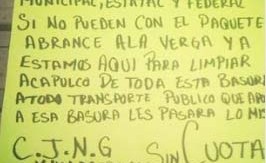 MUNICIPAL, ESTATAL Y FEDERAL
SI NO PUEDEN CON EL PAQUETE
ABRANCE ALA VERGA YA
ESTAMOS AQUI PARA LIMPIAR
ACAPULCO DE TODA ESTA BASURA
ATODO TRANSPORTE PUBLICO QUE
A ESA BASURA LES PASARA LO
C.J.N.G SIN CUOTA